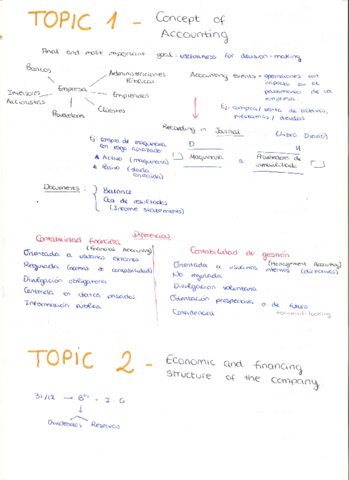 TOPIC 1 - Concept of Accounting
Final and most important goal: usefulness for decision-making
Bancos
Administraciones Públicas
Inversores
Accionistas
Empresa
Empleados
Proveedores
Clientes
Accounting events = operaciones con impacto en el patrimonio de la empresa.
Ej: compra / venta de activos, préstamos / deudas
Recording in Journal (Libro Diario)
Ej: compra de maquinaria con pago aplazado
Activo (maquinaria)
Pasivo (deuda
D H
Maquinaria a Proveedores de inmovilizado
Documents:
Balance
Cta de resultados
(Income statements)
Diferencias
Contabilidad financiera
(Financial Accounting)
Orientada a usuarios externos
Regulada (normas de contabilidad)
Divulgación obligatoria
Centrada en datos pasados
Información pública
Contabilidad de gestión
(Management Accounting)
Orientada a usuarios internos (directivos)
No regulada
Divulgación voluntaria
Orientación prospectiva o de futuro
Confidencial
TOPIC 2 - Economic and financing structure of the company
31/12 → Bº = I - G
Dividendos Reservas